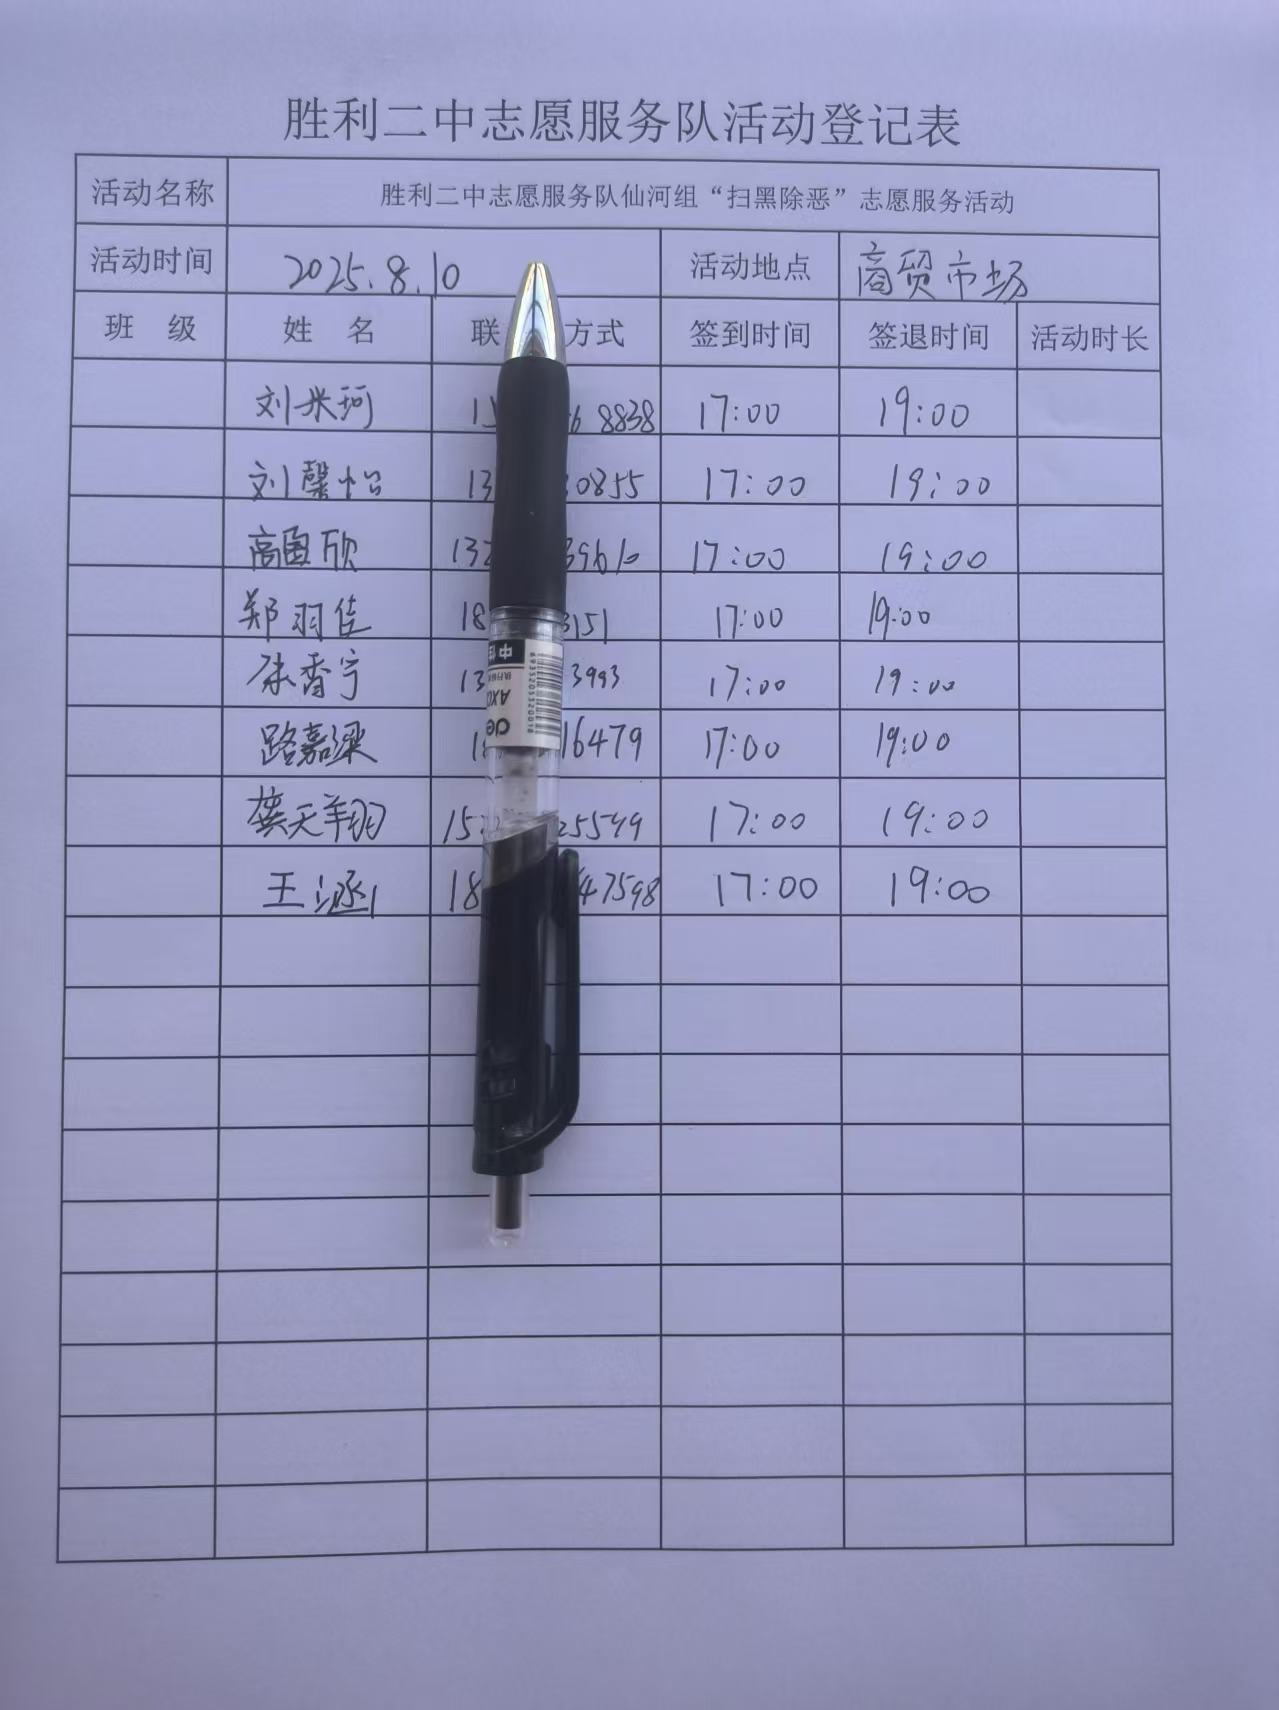 胜利二中志愿服务队活动登记表
活动名称 胜利二中志愿服务队仙河组“扫黑除恶”志愿服务活动
活动时间 2025.8.10 活动地点 商贸市场
班 级 姓 名 联 方式 签到时间 签退时间 活动时长
刘米珂 8838 17:00 19:00
刘馨怡 13 0855 17:00 19:00
高 欣 132 39610 17:00 19:00
郑羽佳 18 3151 17:00 19:00
香宁 13 3993 17:00 19:00
路嘉梁 18 16479 17:00 19:00
龚天翔 15 25599 17:00 19:00
王涵 18 47598 17:00 19:00